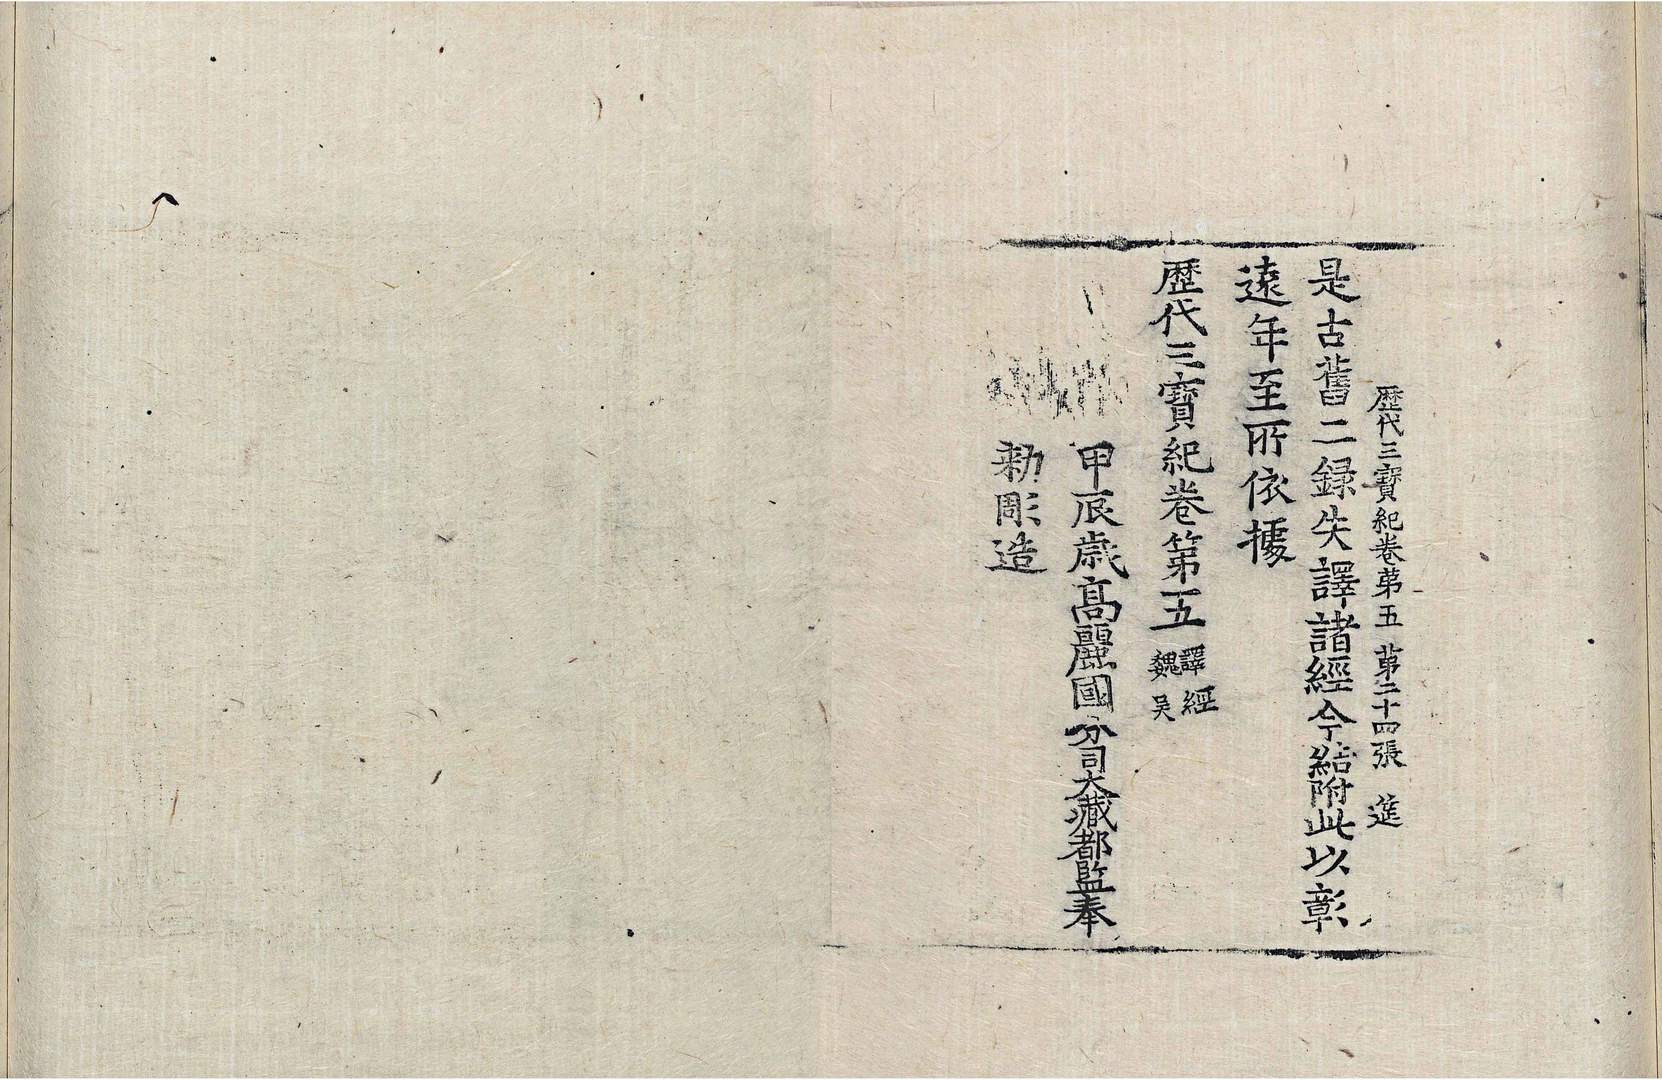 歷代三寶紀卷第五 第二十四張 進
是古舊二録失譯諸經今結附此以彰
遠年至所依據
歷代三寶紀卷第五 譯經
魏吳
甲辰歲高麗國分司大藏都監奉
勑彫造